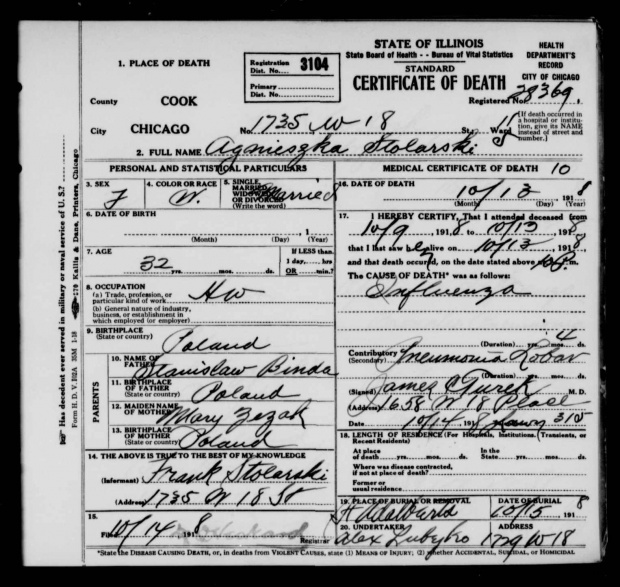 STATE OF ILLINOIS
State Board of Health -- Bureau of Vital Statistics
STANDARD
CERTIFICATE OF DEATH
HEALTH
DEPARTMENT'S
RECORD
CITY OF CHICAGO
Registered No. 29369
1. PLACE OF DEATH
Registration
Dist. No. 3104
Primary
Dist. No.
County COOK
City CHICAGO No. 1735 W 18 St., Ward
[If death occurred in
a hospital or institu-
tion, give its NAME
instead of street and
number.]
2. FULL NAME Agnieszka Stolarski
PERSONAL AND STATISTICAL PARTICULARS
3. SEX F
4. COLOR OR RACE W.
5. SINGLE, MARRIED, WIDOWED, OR DIVORCED (Write the word) Married
6. DATE OF BIRTH
(Month) (Day) (Year)
7. AGE 32 yrs. mos. ds.
If LESS than
1 day, hrs
OR min.?
8. OCCUPATION HW
(a) Trade, profession, or
particular kind of work
(b) General nature of industry,
business, or establishment in
which employed (or employer)
9. BIRTHPLACE
(State or country) Poland
PARENTS
10. NAME OF
FATHER Stanislaw Binda
11. BIRTHPLACE
OF FATHER
(State or country) Poland
12. MAIDEN NAME
OF MOTHER Mary
13. BIRTHPLACE
OF MOTHER
(State or country) Poland
14. THE ABOVE IS TRUE TO THE BEST OF MY KNOWLEDGE
(Informant) Frank Stolarski
(Address) 1735 W 18 St
15.
Filed 10/14 1918
Registrar
MEDICAL CERTIFICATE OF DEATH 10
16. DATE OF DEATH
10/13, 1918
(Month) (Day) (Year)
17. I HEREBY CERTIFY, That I attended deceased from
10/9, 1918, to 10/13 1918,
that I last saw her alive on 10/13, 1918,
and that death occurred, on the date stated above, m.
The CAUSE OF DEATH* was as follows:
Influenza
(Duration) yrs. mos. 4 ds.
Contributory
(Secondary) Pneumonia Lobar
(Duration) yrs. mos. ds.
(Signed) James M. D.
(Address) 1658 W 18
Date 10/14 191
18. LENGTH OF RESIDENCE (For Hospitals, Institutions, Transients, or
Recent Residents)
At place
of death yrs. mos. ds.
In the
State yrs. mos. ds.
Where was disease contracted,
if not at place of death?
Former or
usual residence
19. PLACE OF BURIAL OR REMOVAL
St Adalberts
DATE OF BURIAL
10/15 1918
20. UNDERTAKER
Alex
ADDRESS
1729 W 18
*State the DISEASE CAUSING DEATH, or, in deaths from VIOLENT CAUSES, state (1) MEANS OF INJURY; (2) whether ACCIDENTAL, SUICIDAL, OR HOMICIDAL
Has decedent ever served in military or naval service of U. S.?
Form H. D. V. 102A 35M 1-18 270 Dans, Printers, Chicago